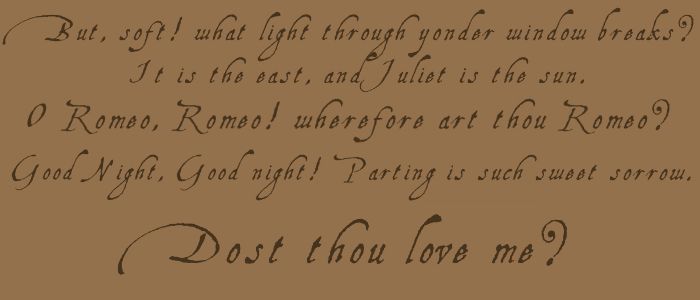 But, soft! what light through yonder window breaks?
It is the east, and Juliet is the sun.
O Romeo, Romeo! wherefore art thou Romeo?
Good Night, Good night! Parting is such sweet sorrow.
Dost thou love me?